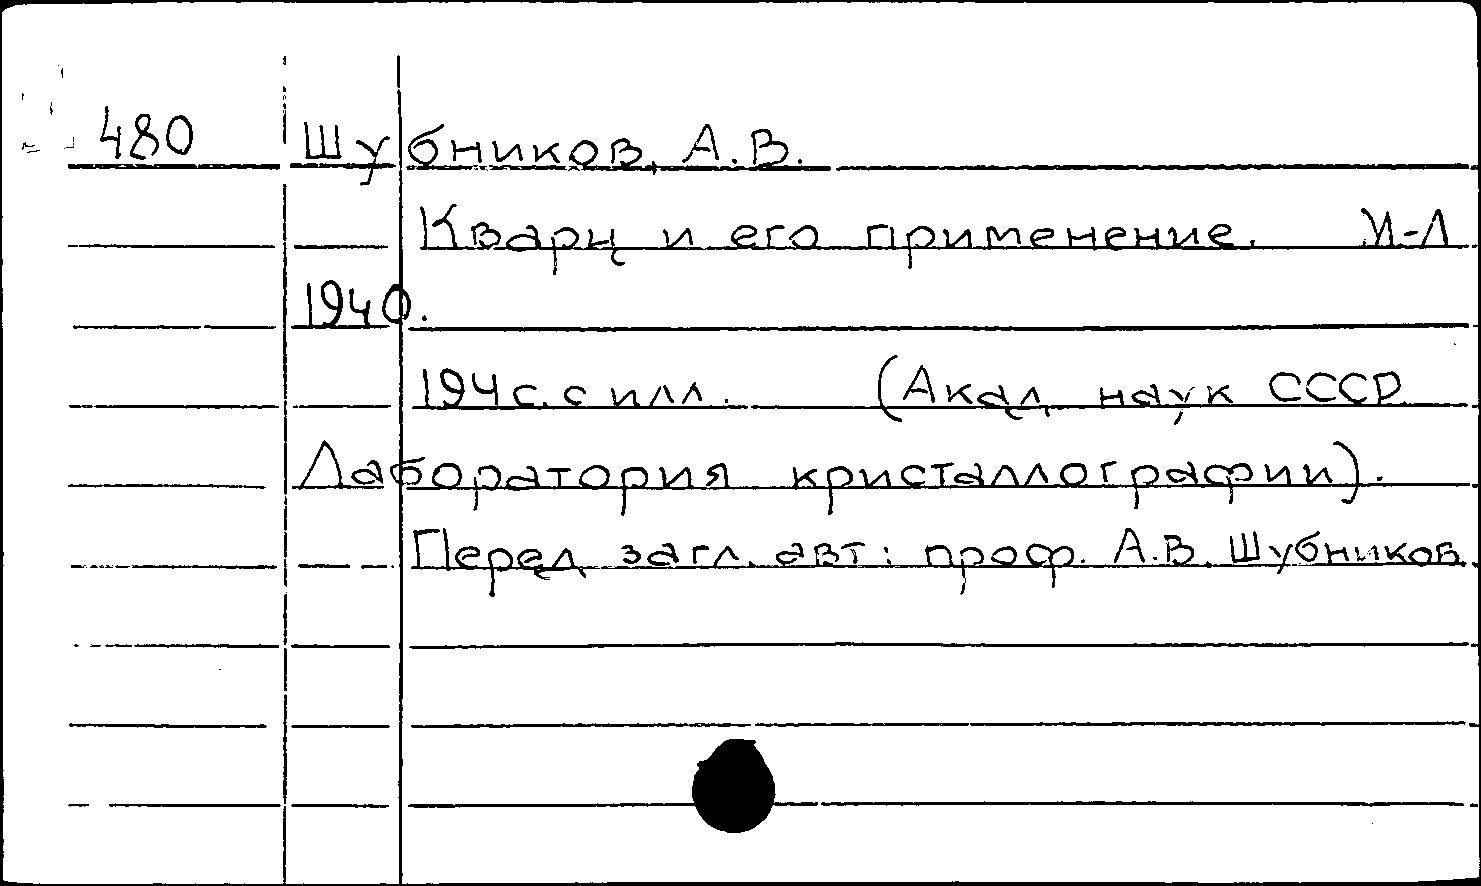 480 Шубников, А.В.
Кварц и его применение. М-Л
1940.
194 с. с илл. (Акад. наук СССР
Лаборатория кристаллографии).
Перед загл. авт: проф. А.В. Шубников.